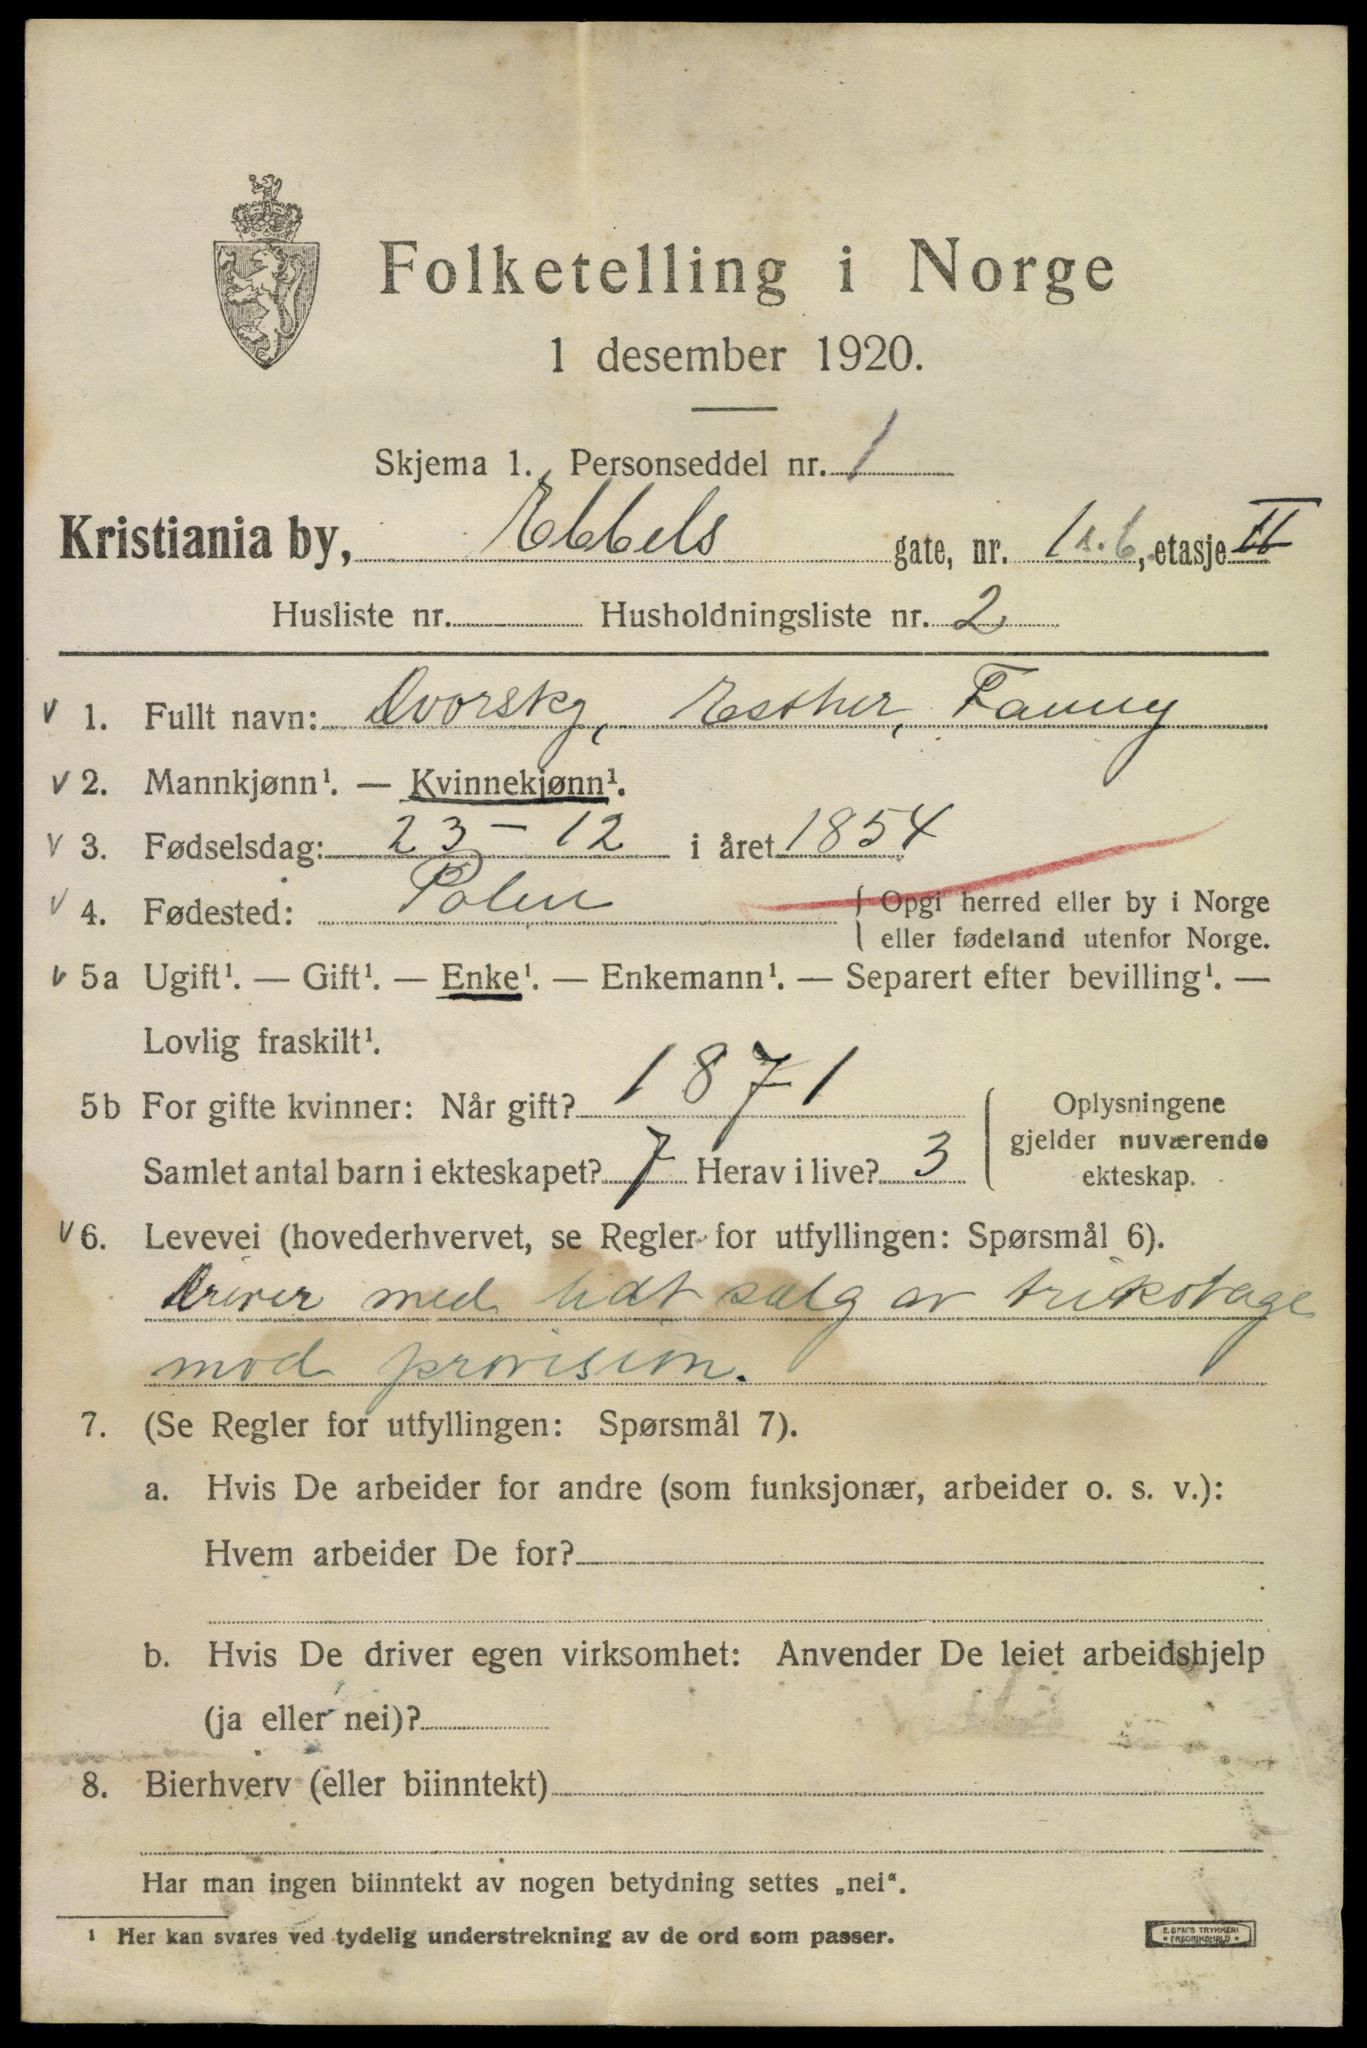 Folketelling i Norge
1 desember 1920.
Skjema 1. Personseddel nr. 1
Kristiania by, Ebbels gate, nr. 1 s. b., etasje II
Husliste nr. Husholdningsliste nr. 2
v 1. Fullt navn: Dvorsky, Esther, Fanny
v 2. Mannkjønn¹. — Kvinnekjønn¹.
v 3. Fødselsdag: 23 - 12 i året 1854
v 4. Fødested: Polen { Opgi herred eller by i Norge
eller fødeland utenfor Norge.
v 5a Ugift¹. — Gift¹. — Enke¹. — Enkemann¹. — Separert efter bevilling¹. —
Lovlig fraskilt¹.
5b For gifte kvinner: Når gift? 1871
Samlet antal barn i ekteskapet? 7 Herav i live? 3
Oplysningene
gjelder nuværende
ekteskap.
v 6. Levevei (hovederhvervet, se Regler for utfyllingen: Spørsmål 6).
Driver med lidt salg av trikotage
mod provision.
7. (Se Regler for utfyllingen: Spørsmål 7).
a. Hvis De arbeider for andre (som funksjonær, arbeider o. s. v.):
Hvem arbeider De for?
b. Hvis De driver egen virksomhet: Anvender De leiet arbeidshjelp
(ja eller nei)?
8. Bierhverv (eller biinntekt)
Har man ingen biinntekt av nogen betydning settes „nei“.
¹ Her kan svares ved tydelig understrekning av de ord som passer.
E. SEM'S TRYKKERI
* FREDRIKSHALD *